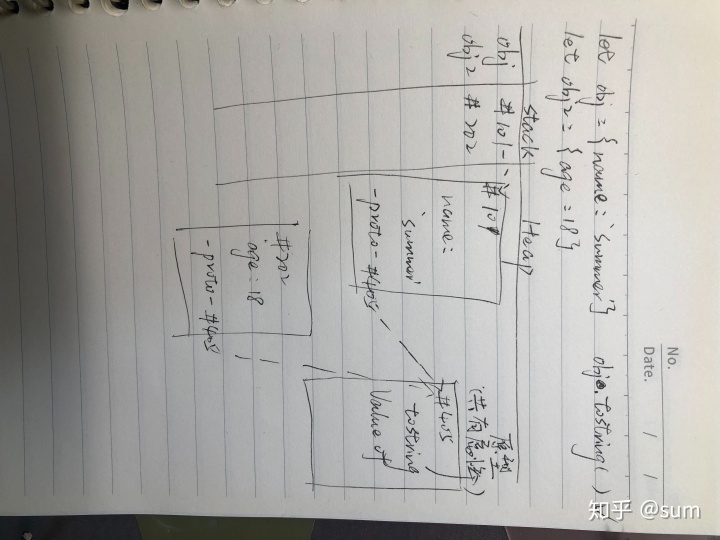 No.
Date. / /
let obj = {name: 'summer'} obj.tostring()
let obj2 = {age: 18}
stack Heap
obj #101
obj2 #202
#101
name:
'summer'
-proto-#405
#202
age: 18
-proto-#405
原型
(共有属性)
#405
tostring
Value of
知乎 @sum